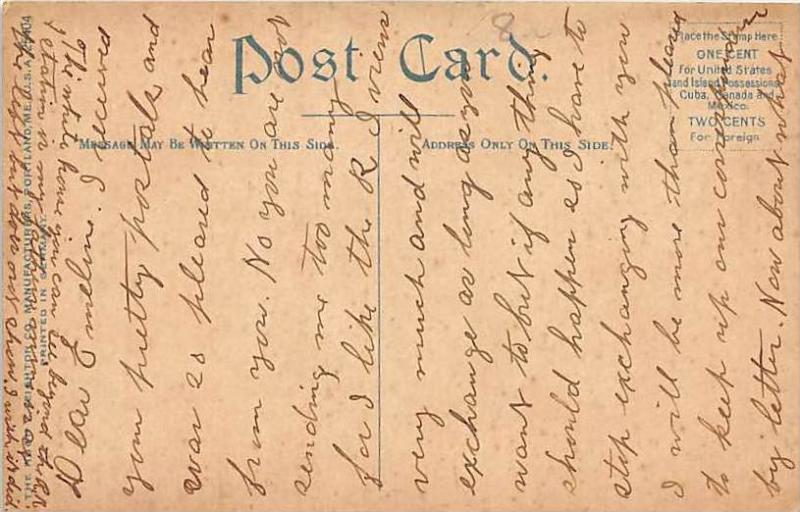 Post Card.
Message May Be Written On This Side.
Address Only On This Side.
Place the Stamp Here
ONE CENT
For United States
and Island Possessions
Cuba, Canada and
Mexico.
TWO CENTS
For Foreign
THE HUGH C. LEIGHTON CO., MANUFACTURERS, PORTLAND, ME., U.S.A.
PRINTED IN GERMANY.
Dear Emeline: I received
your pretty postals and
was as pleased to hear
from you. No you are not
sending me too many
for I like the R. I views
very much and will
exchange as long as you
want to but if anything
should happen as I have to
stop exchanging with you
I will be more than pleased
to keep up our
by letter. Now about what
The white house you can see beyond the